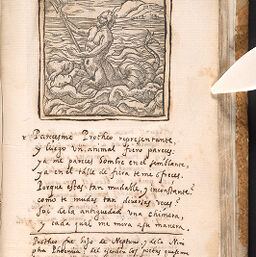 Pareceisme Protheo representante,
y luego un animal fiero pareces.
ya me pareces hombre en el semblante,
ya en el talle de fiera te me ofreces.
Porque estas tan mudable, y inconstante?
como te mudas tan diversas veces?
Soi de la antiguedad una chimera,
y cada qual me mira a su manera.
Protheo fue hijo de Neptuno, y de la Nim